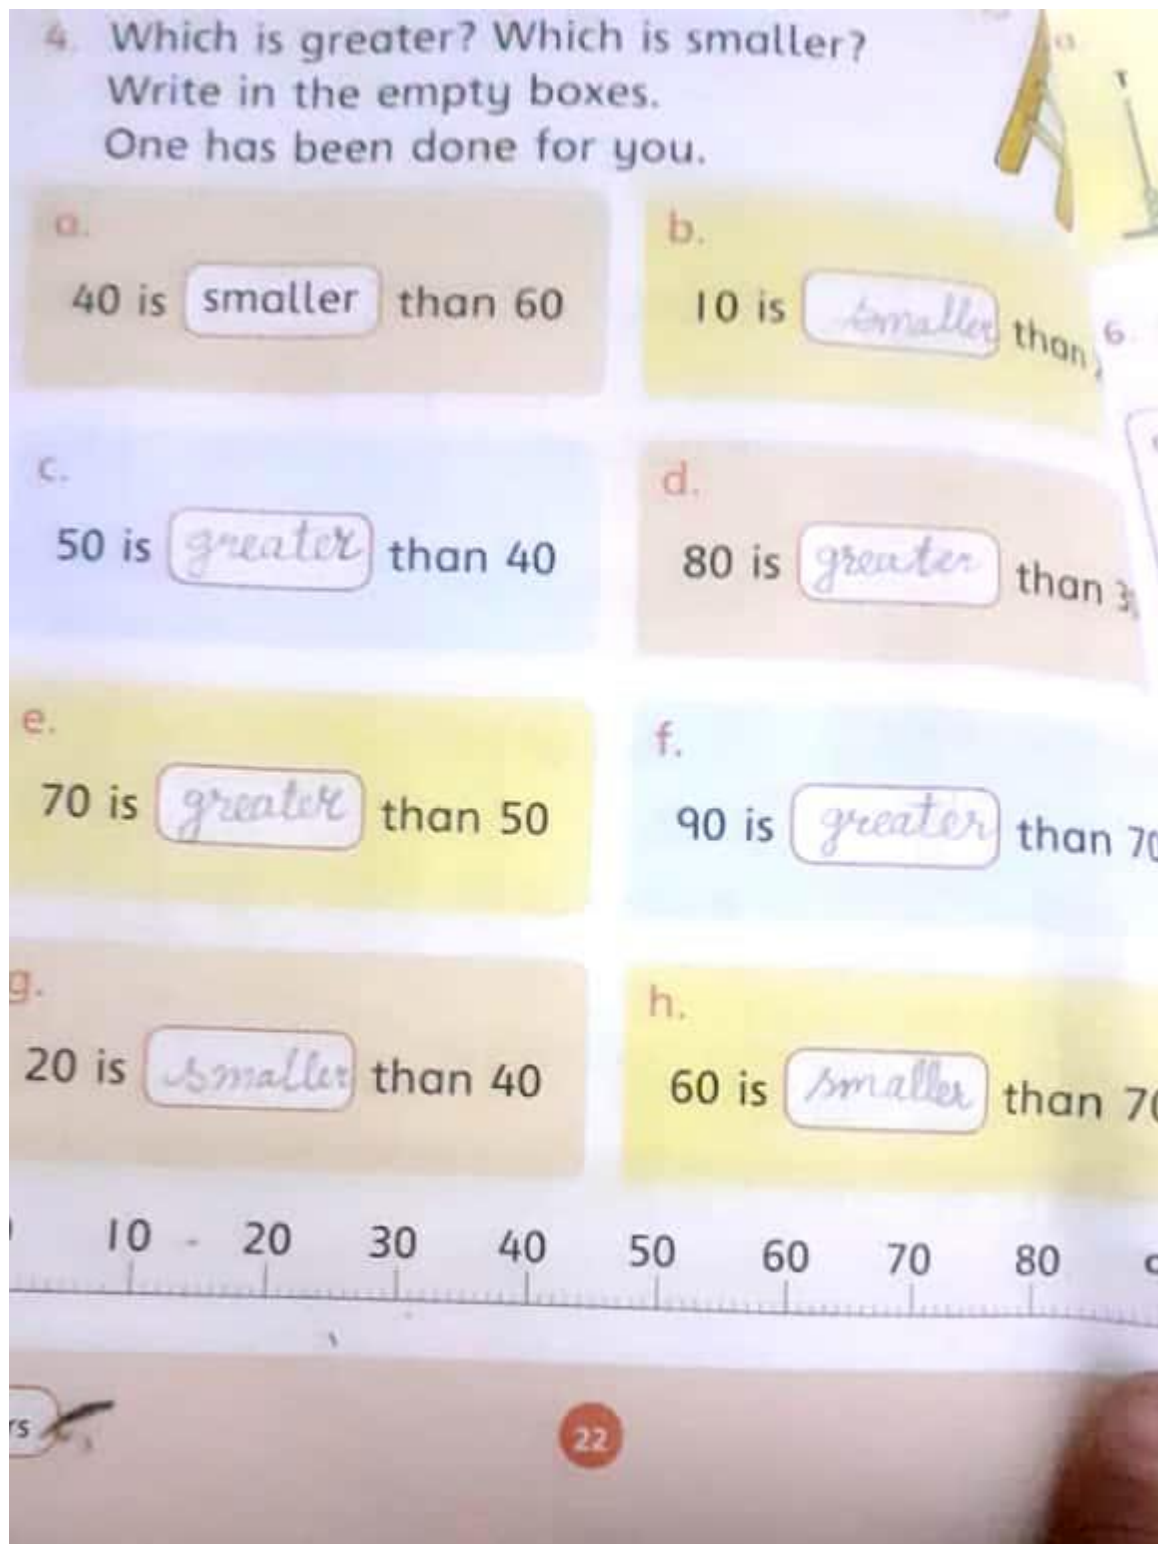 4. Which is greater? Which is smaller?
Write in the empty boxes.
One has been done for you.
a.
40 is smaller than 60
b.
10 is smaller than
c.
50 is greater than 40
d.
80 is greater than
e.
70 is greater than 50
f.
90 is greater than 70
g.
20 is smaller than 40
h.
60 is smaller than 70
10 20 30 40 50 60 70 80
22
6.
a.
rs